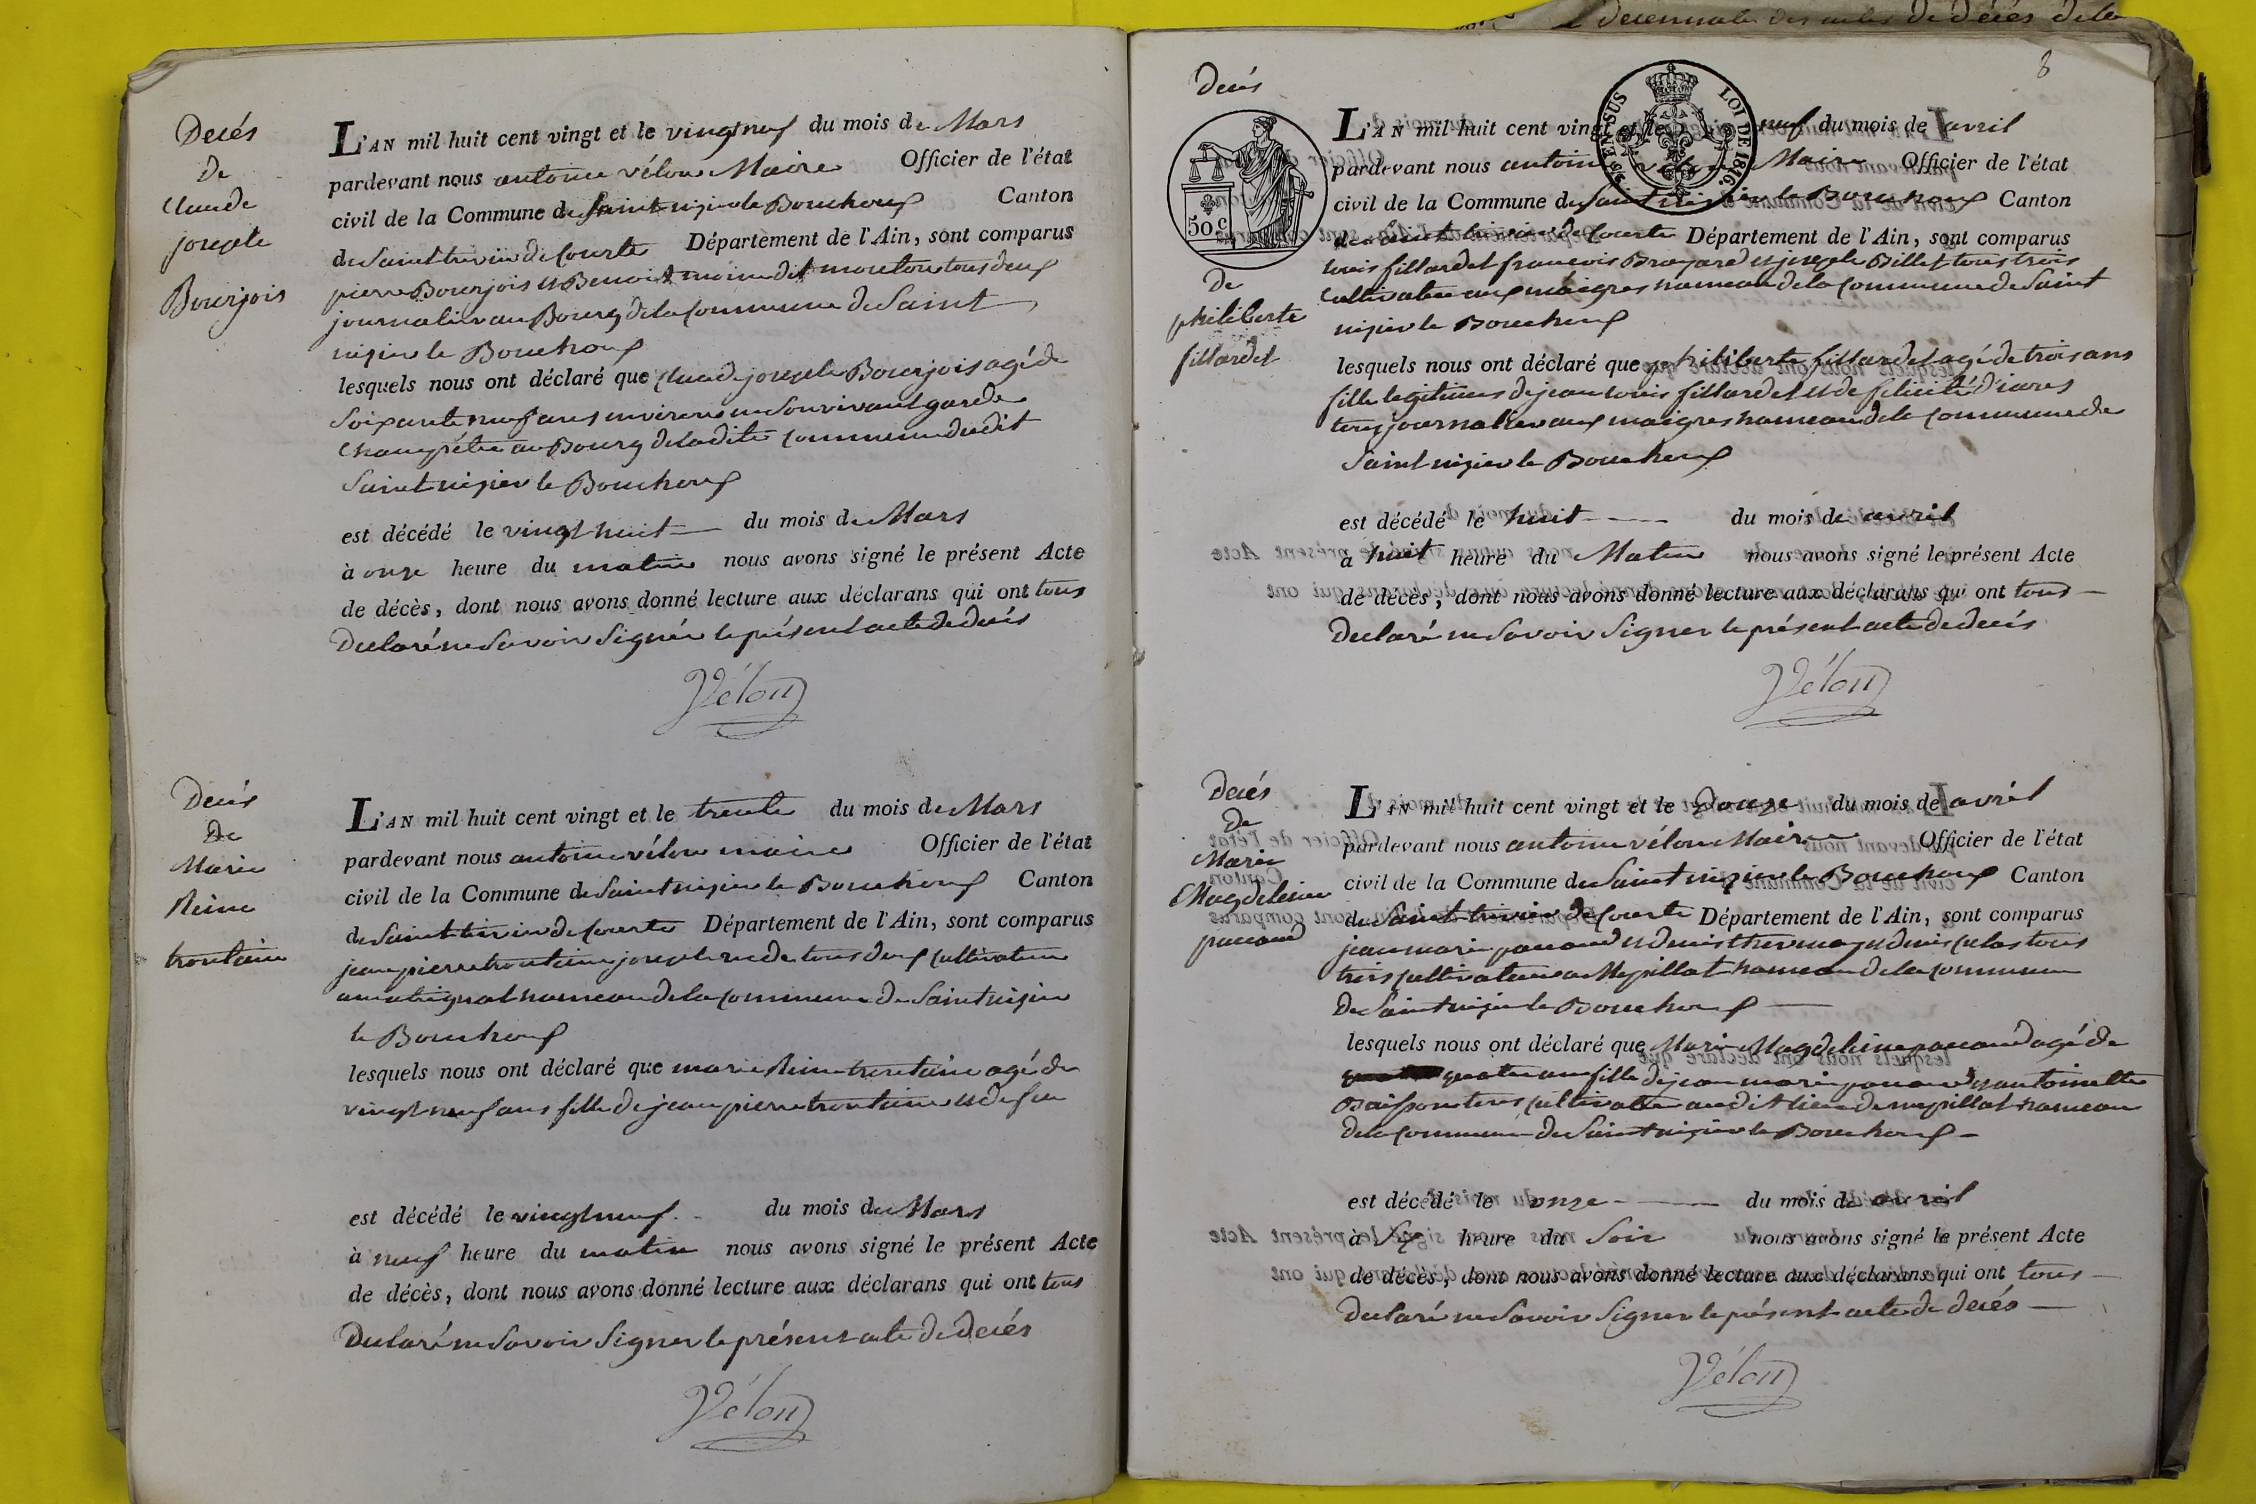 Decés
de
Claude
joseph
Bourjois
L'AN mil huit cent vingt et le vingt neuf du mois de Mars
pardevant nous antoine vélon Maire Officier de l'état
civil de la Commune de Saint nizier le Bouchoux Canton
de Saint trivier de Courte Département de l'Ain, sont comparus
pierre Bourjois et Benoit moine dit mouton tous deux
journalier au Bourg de la Commune de Saint
nizier le Bouchoux
lesquels nous ont déclaré que Claude joseph Bourjois agé de
Soixante neuf ans environ en Son vivant garde
Champétre au Bourg de la dite Commune du dit
Saint nizier le Bouchoux
est décédé le vingt huit du mois de Mars
à onze heure du matin nous avons signé le présent Acte
de décès, dont nous avons donné lecture aux déclarans qui ont tous
Declaré ne Savoir Signér le présent acte de decés
Vélon
Decés
De
Marie
Reine
trontaine
L'AN mil huit cent vingt et le trente du mois de Mars
pardevant nous antoine vélon maire Officier de l'état
civil de la Commune de Saint nizier le Bouchoux Canton
de Saint trivier de Courte Département de l'Ain, sont comparus
jean pierre trontaine joseph tous deux Cultivateur
hameau de la Commune de Saint nizier
le Bouchoux
lesquels nous ont déclaré que marie Reine trontaine agé de
vingt neuf ans fille de jean pierre trontaine et de feu
est décédé le vingt neuf du mois de Mars
à neuf heure du matin nous avons signé le présent Acte
de décès, dont nous avons donné lecture aux déclarans qui ont tous
Declaré ne Savoir Signer le présent acte de Decés
Vélon
decennale des actes de Décés de la
8
Decés
50 c.
SUS EN SUS LOI DE 1816.
de
philiberte
fillardet
L'AN mil huit cent vingt et le neuf du mois de avril
pardevant nous antoine vélon Maire Officier de l'état
civil de la Commune de Saint nizier le Bouchoux Canton
de Saint trivier de Courte Département de l'Ain, sont comparus
louis fillardet francois Broyard et joseph Billet tous trois
Cultivateur aux maigres hameau de la Commune de Saint
nizier le Bouchoux
lesquels nous ont déclaré que philiberte fillardet agé de trois ans
fille legitime de jean louis fillardet et de felicité
journalier aux maigres hameau de la Commune de
Saint nizier le Bouchoux
est décédé le huit du mois de avril
à huit heure du Matin nous avons signé le présent Acte
de décès, dont nous avons donné lecture aux déclarans qui ont tous
Declaré ne Savoir Signer le présent acte de decés
Vélon
Decés
De
Marie
Magdeleine
pauand
L'AN mil huit cent vingt et le Douze du mois de avril
pardevant nous antoine vélon Maire Officier de l'état
civil de la Commune de Saint nizier le Bouchoux Canton
de Saint trivier de Courte Département de l'Ain, sont comparus
jean marie pauand et denis et denis tous
trois Cultivateur a Mepillat hameau de la Commune
De Saint nizier le Bouchoux
lesquels nous ont déclaré que Marie Magdeleine pauand agé de
quatre ans fille de jean marie pauand et antoinette
Cultivateur au dit lieu de mepillat hameau
de la Commune de Saint nizier le Bouchoux
est décédé le onze du mois de avril
à Six heure du Soir nous avons signé le présent Acte
de décès, dont nous avons donné lecture aux déclarans qui ont tous
Declaré ne Savoir Signer le présent acte de decés
Vélon